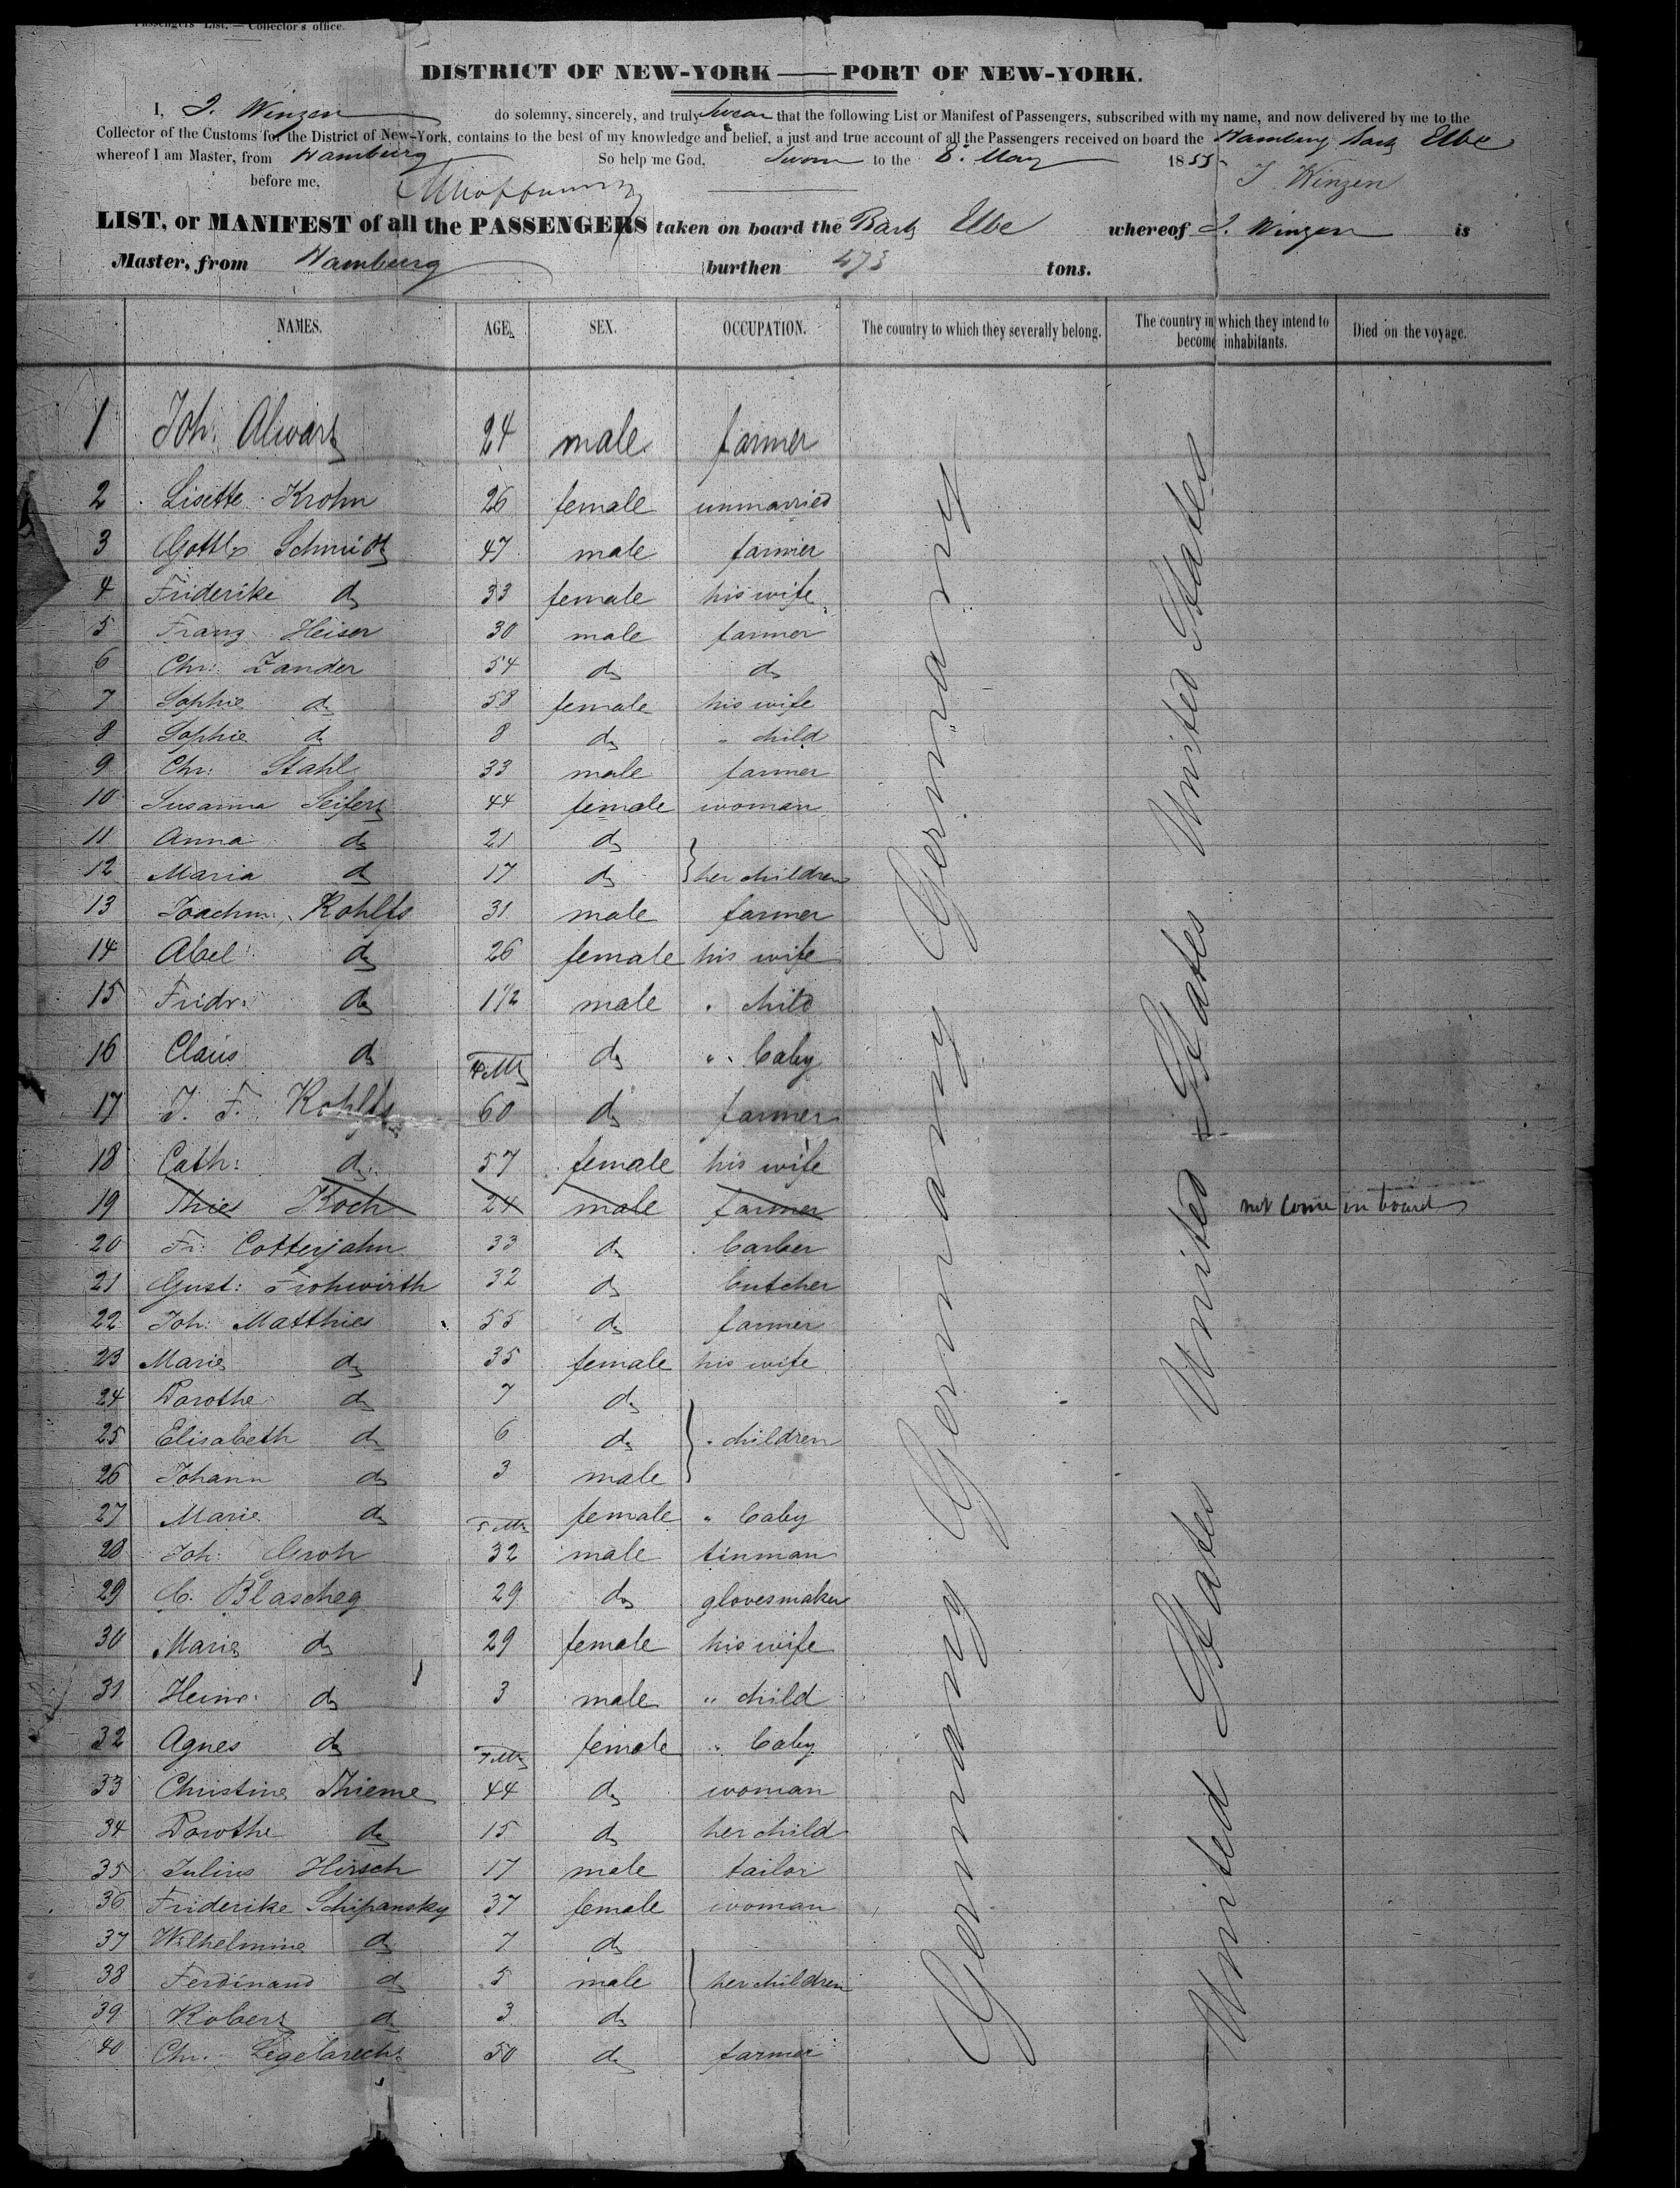 Passengers' List. — Collector's office.
DISTRICT OF NEW-YORK — PORT OF NEW-YORK.
I, J. Winzen do solemny, sincerely, and truly swear that the following List or Manifest of Passengers, subscribed with my name, and now delivered by me to the
Collector of the Customs for the District of New-York, contains to the best of my knowledge and belief, a just and true account of all the Passengers received on board the Hamburg Bark Elbe
whereof I am Master, from Hamburg So help me God. Sworn to the 8. May 1855
before me, J Winzen
LIST, or MANIFEST of all the PASSENGERS taken on board the Bark Elbe whereof J. Winzen is
Master, from Hamburg burthen 473 tons.
NAMES. AGE. SEX. OCCUPATION. The country to which they severally belong. The country in which they intend to become inhabitants. Died on the voyage.
1 Joh: Alwart 24 male farmer
2 Lisette Krohn 26 female unmarried
3 Gottlb Schmidt 47 male farmer
4 Friderike do 33 female his wife
5 Franz Heiser 30 male farmer
6 Chr: Zander 54 do do
7 Sophie do 58 female his wife
8 Sophie do 8 do " child
9 Chr: Stahl 33 male farmer
10 Susanna Seifert 44 female woman
11 Anna do 21 do
12 Maria do 17 do her children
13 Joachim Rohlfs 31 male farmer
14 Abel do 26 female his wife
15 Fridr: do 1 1/2 male " child
16 Claus do 4 Mt do " baby
17 J. F. Rohlfs 60 do farmer
18 Cath: do 57 female his wife
19 Thies Koch 24 male farmer not come on board
20 Fr: Cotterjahn 33 do barber
21 Gust: Frohwirth 32 do butcher
22 Joh: Matthies 55 do farmer
23 Marie do 35 female his wife
24 Dorothe do 7 do
25 Elisabeth do 6 do " children
26 Johann do 3 male
27 Marie do 5 Mt female " baby
28 Joh: Groh 32 male tinman
29 C. Blascheg 29 do glovesmaker
30 Marie do 29 female his wife
31 Heinr: do 3 male " child
32 Agnes do Mt female " baby
33 Christine Thieme 44 do woman
34 Dorothe do 15 do her child
35 Julius Hirsch 17 male tailor
36 Friderike Schipansky 37 female woman
37 Wilhelmine do 7 do
38 Ferdinand do 5 male her children
39 Robert do 3 do
40 Chr: Segebrecht 50 do farmer
Germany Germany Germany Germany
United States United States United States